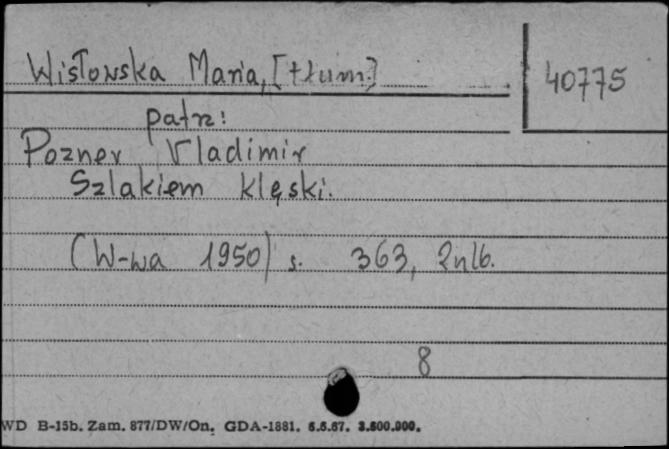 Wisłowska Maria, [tłum.]
40775
patrz:
Pozner Vladimir
Szlakiem klęski.
(W-wa 1950) s. 363, 2nlb.
8
WD B-15b. Zam. 877/DW/On. GDA-1881. 6.6.67. 3.500.000.